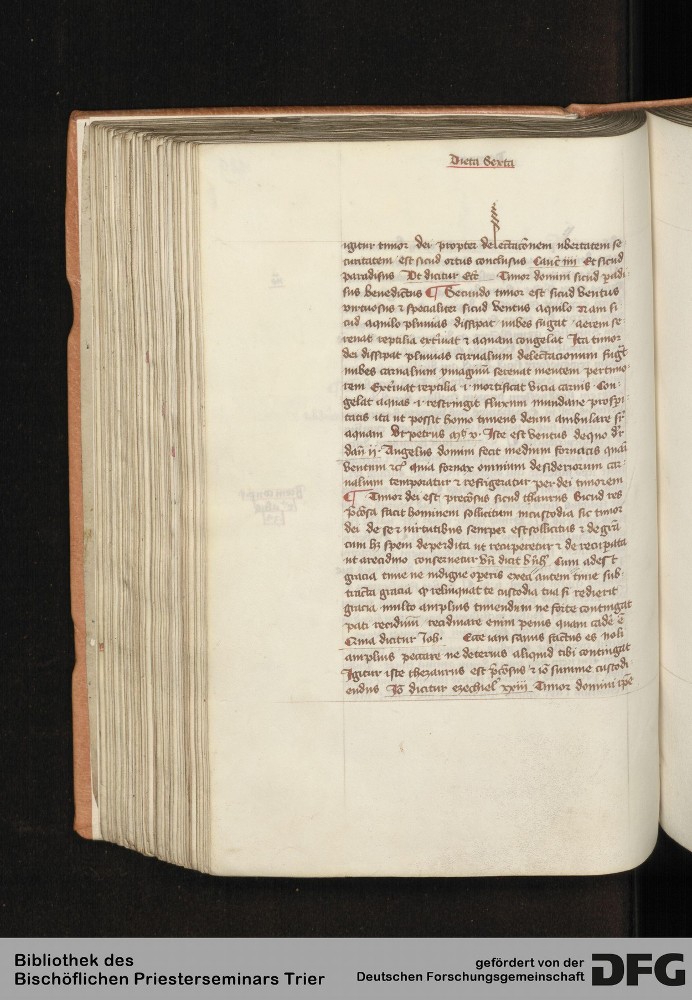 Dieta Sexta
igitur timor dei propter delectacõnem ubertatem se
curitatem est sicud ortus conclusus Canc̃ iiii Et sicud
paradisus Vt dicitur Ecc̃ Timor domini sicud padi
sus benedictus ¶ Secundo timor est sicud ventus
virtuosus & specialiter sicud ventus aquilo Nam si
cud aquilo pluvias dissipat nubes fugat aerem se
renat reptilia extĩvat & aquam congelat Ita timor
dei dissipat pluvias carnalium delectacionum fugat
nubes carnalium ymaginũ serenat mentem per timo
rem Extĩvat reptilia .i. mortificat vicia carnis Con
gelat aquas .i. restringit fluxum mundane prospi
tatis ita ut possit homo timens deum ambulare sr̃
aquam Vt petrus Iste est ventus de quo dr̃
dañ ii Angelus domini fecit medium fornacis quasi
ventum rc̃ quia fornax omnium desideriorum car
nalium temporatur & refrigeratur per dei timorem
¶ Timor dei est precõsus sicud thaurus Sicud res
p̃cõsa facit hominem sollicitum in custodia sic timor
dei de se & virtutibus semper est sollicitus & de grã
cum hz spem deperdita ut recuperetur & de recuperata
ut a recidivo conservetur vñ dicit Cum adest
gracia time ne indigne operis ex ea autem time sub
tracta gracia q̃ relinquat te custodia tua si redierit
gracia multo amplius timendum ne forte contingat
pati recidivũ recidivare enim peius quam cade ẽ
Qma dicitur Joh. Ecce iam sanus factus es noli
amplius peccare ne deterius aliquid tibi contingat
Igitur iste thezaurus est p̃cõsus & iõ summe custodi
endus Iõ dicitur ezechieł xxiii Timor domini ipẽ
Bibliothek des
Bischöflichen Priesterseminars Trier
gefördert von der
Deutschen Forschungsgemeinschaft
DFG